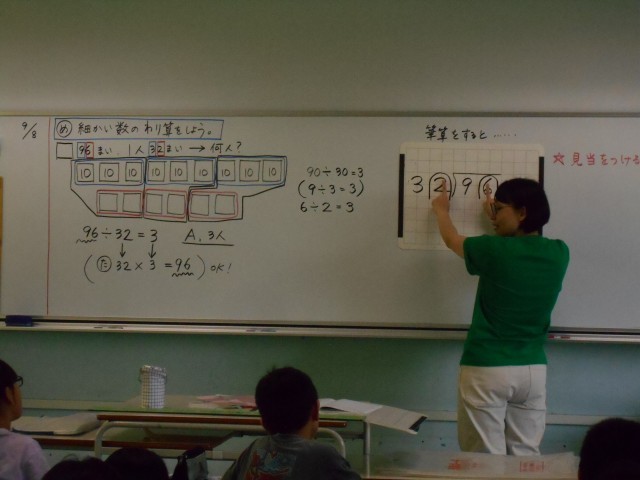 9/8
め 細かい数のわり算をしよう。
96まい、1人32まい → 何人?
10 10 10 10 10 10 10 10 10
96÷32=3 A,3人
(た 32×3=96) OK!
90÷30=3
(9÷3=3)
6÷2=3
筆算をすると……
32)96
☆見当をつける